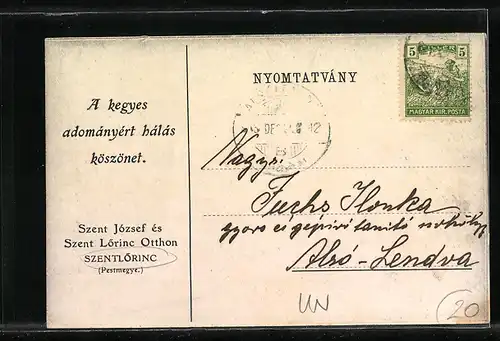 A kegyes
adományért hálás
köszönet.
Szent József és
Szent Lőrinc Otthon
SZENTLŐRINC
(Pestmegye.)
NYOMTATVÁNY
5 FILLÉR 5
MAGYAR KIR. POSTA
Nagys:
Fuchs Ilonka
gyors és gépiró tanitó
Alsó-Lendva
20